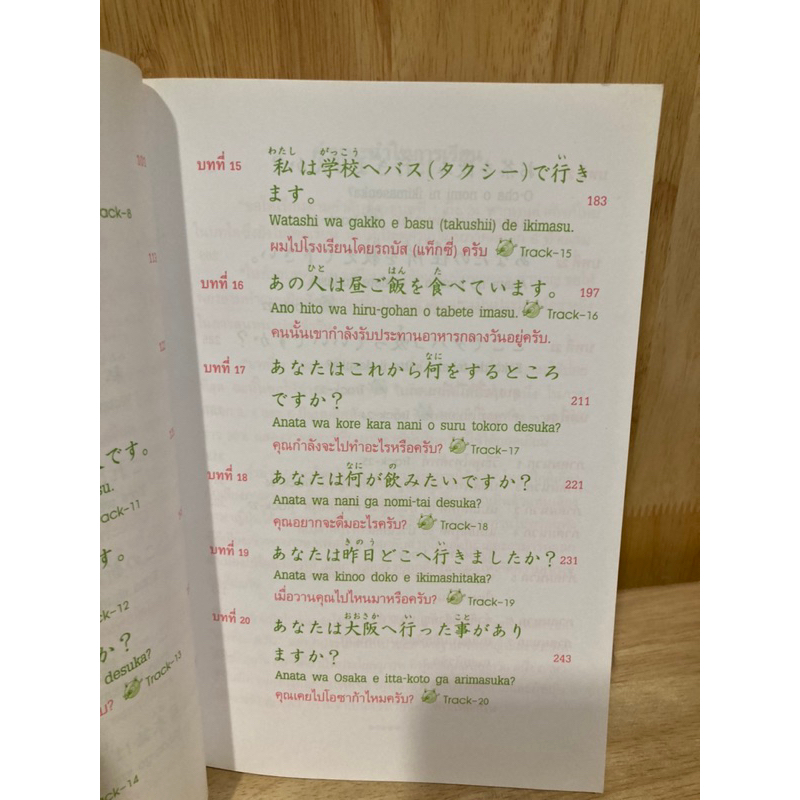 บทที่ 15
わたし がっこう い
私は学校へバス(タクシー)で行き
ます。
183
Watashi wa gakko e basu (takushii) de ikimasu.
ผมไปโรงเรียนโดยรถบัส (แท็กซี่) ครับ Track-15
บทที่ 16
ひと はん た
あの人は昼ご飯を食べています。 197
Ano hito wa hiru-gohan o tabete imasu. Track-16
คนนั้นเขากำลังรับประทานอาหารกลางวันอยู่ครับ.
บทที่ 17
なに
あなたはこれから何をするところ
ですか? 211
Anata wa kore kara nani o suru tokoro desuka?
คุณกำลังจะไปทำอะไรหรือครับ? Track-17
บทที่ 18
なに の
あなたは何が飲みたいですか? 221
Anata wa nani ga nomi-tai desuka?
คุณอยากจะดื่มอะไรครับ? Track-18
บทที่ 19
きのう い
あなたは昨日どこへ行きましたか? 231
Anata wa kinoo doko e ikimashitaka?
เมื่อวานคุณไปไหนมาหรือครับ? Track-19
บทที่ 20
おおさか い こと
あなたは大阪へ行った事があり
ますか? 243
Anata wa Osaka e itta-koto ga arimasuka?
คุณเคยไปโอซาก้าไหมครับ? Track-20
ack-8
です。
su.
ack-11
す。
k-12
か?
desuka?
Track-13
ck-14